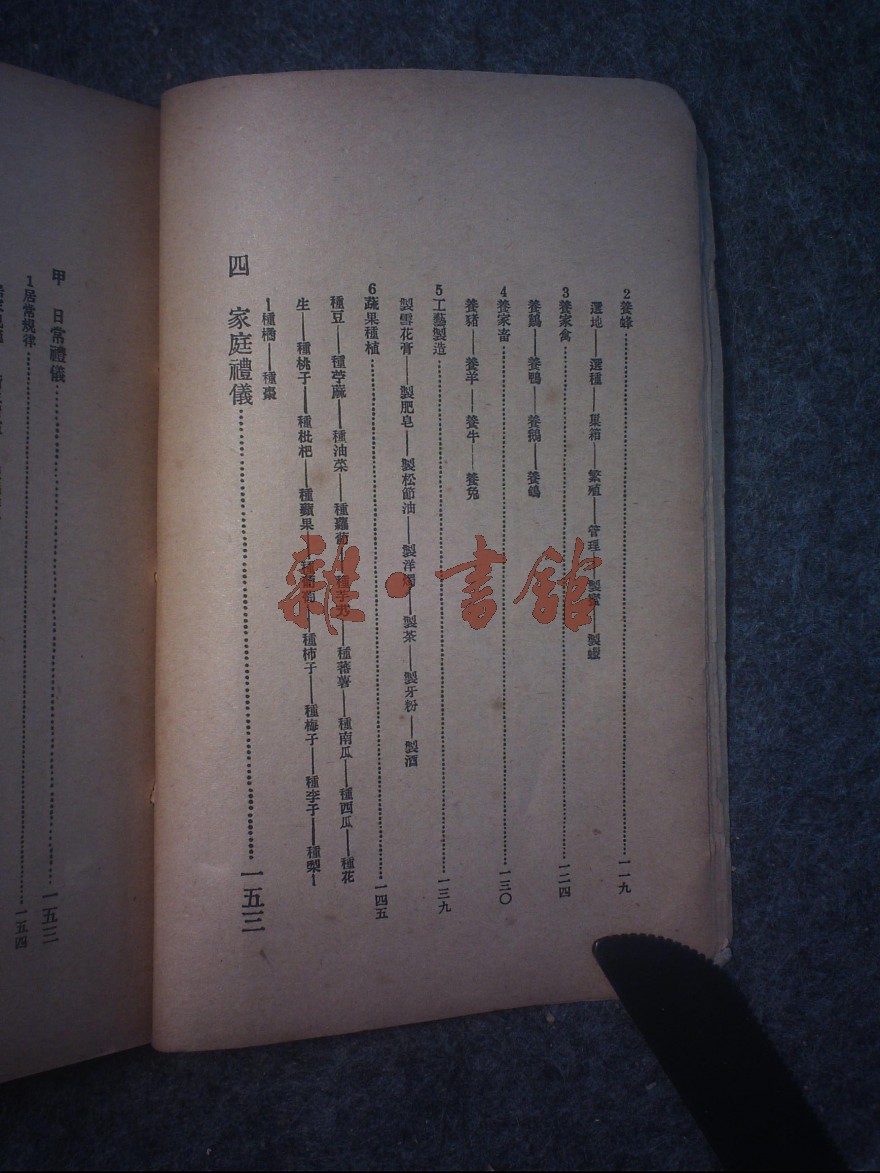 2養蜂……一一九
選地——選種——巢箱——繁殖——管理——製蜜——製蠟
3養家禽……一二四
養鷄——養鴨——養鵝——養鴿
4養家畜……一三〇
養豬——養羊——養牛——養兔
5工藝製造……一三九
製雪花膏——製肥皂——製松節油——製洋燭——製茶——製牙粉——製酒
6蔬果種植……一四五
種豆——種苧麻——種油菜——種蘿蔔——種芋艿——種蕃薯——種南瓜——種西瓜——種花
生——種桃子——種枇杷——種蘋果——種葡萄——種柿子——種梅子——種李子——種梨—
—種橘——種棗
四 家庭禮儀……一五三
甲 日常禮儀……一五三
1居常規律……一五四
雜·書館